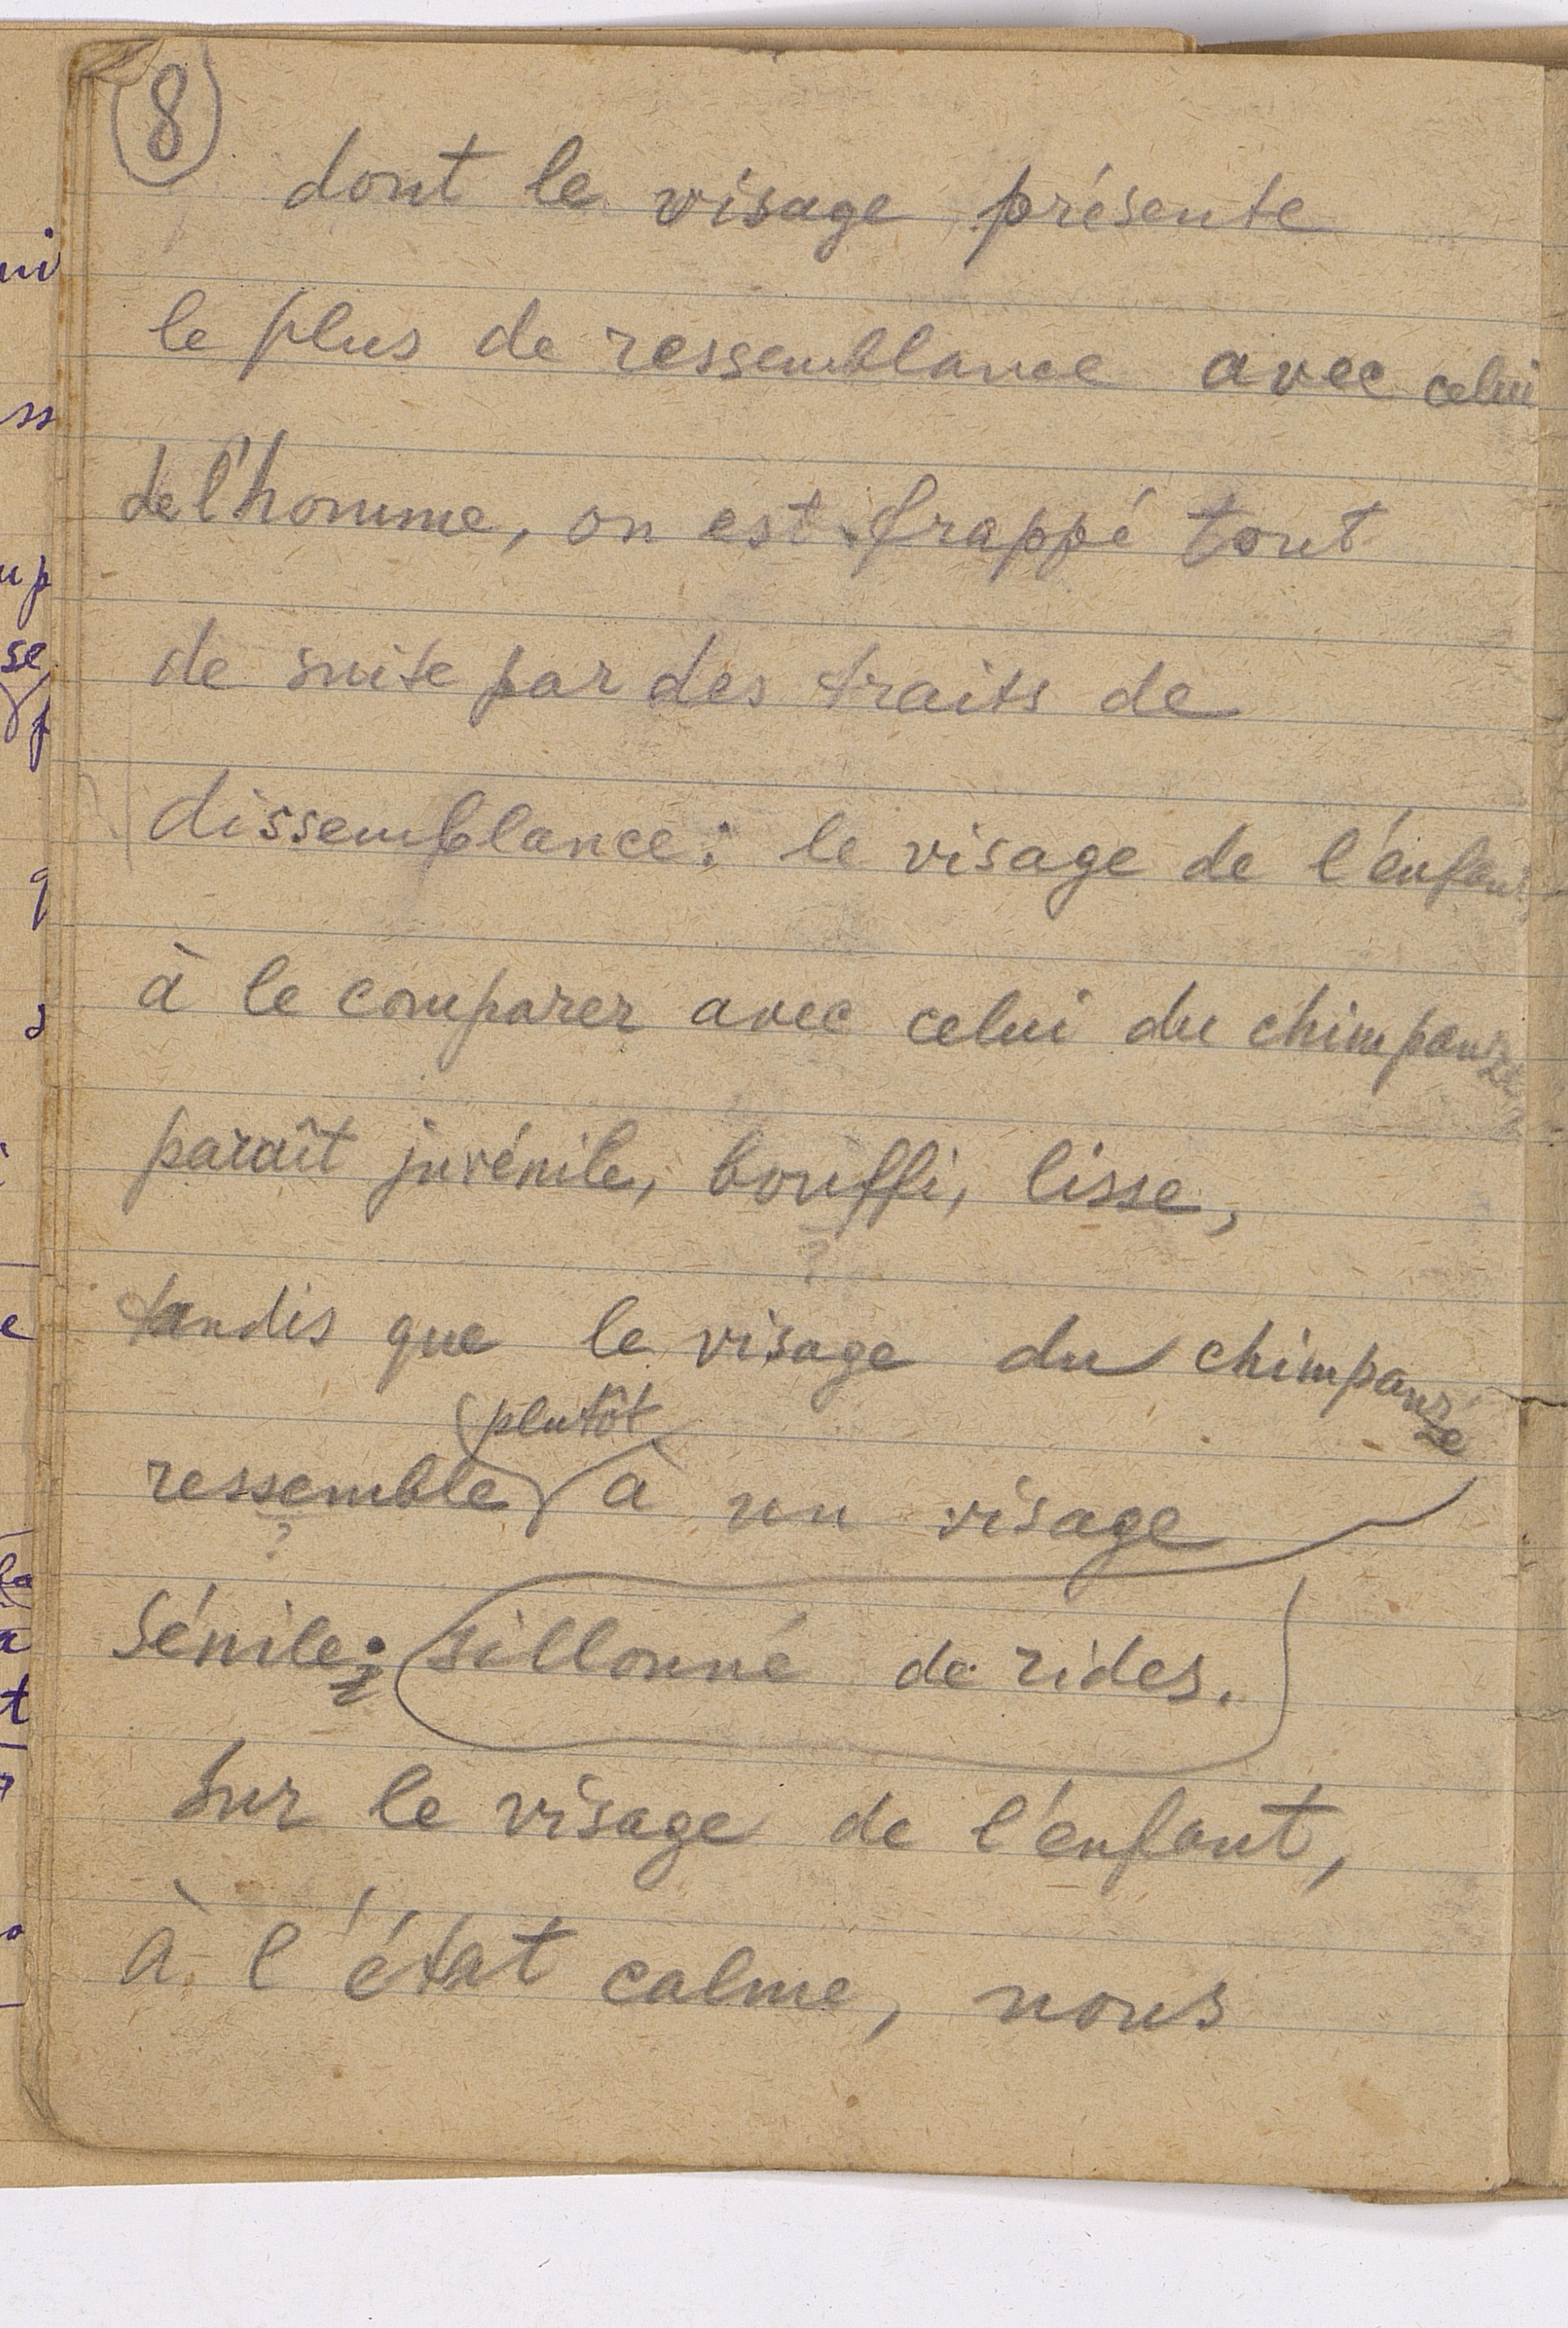 8
dont le visage présente
le plus de ressemblance avec celui
de l'homme, on est frappé tout
de suite par des traits de
dissemblance: le visage de l'enfant
à le comparer avec celui du chimpanzé
paraît juvénile, bouffi, lisse,
?
tandis que le visage du chimpanzé
plutôt
ressemble à un visage
?
sénile; sillonné de rides.
Sur le visage de l'enfant,
à l'état calme, nous